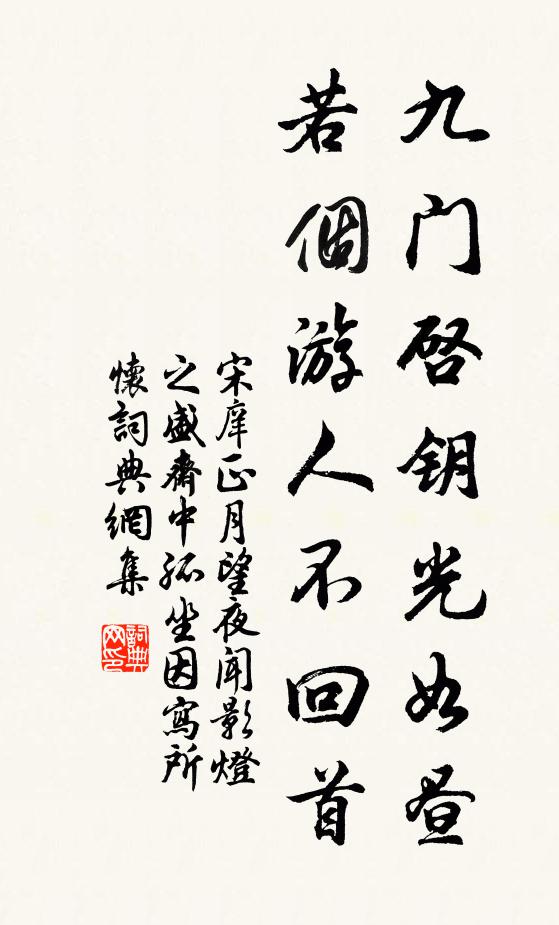 九门启钥光如昼
若個游人不回首
宋庠正月望夜闻影燈
之盛齋中孤坐因寫所
懷詞典網集
詞典
网印